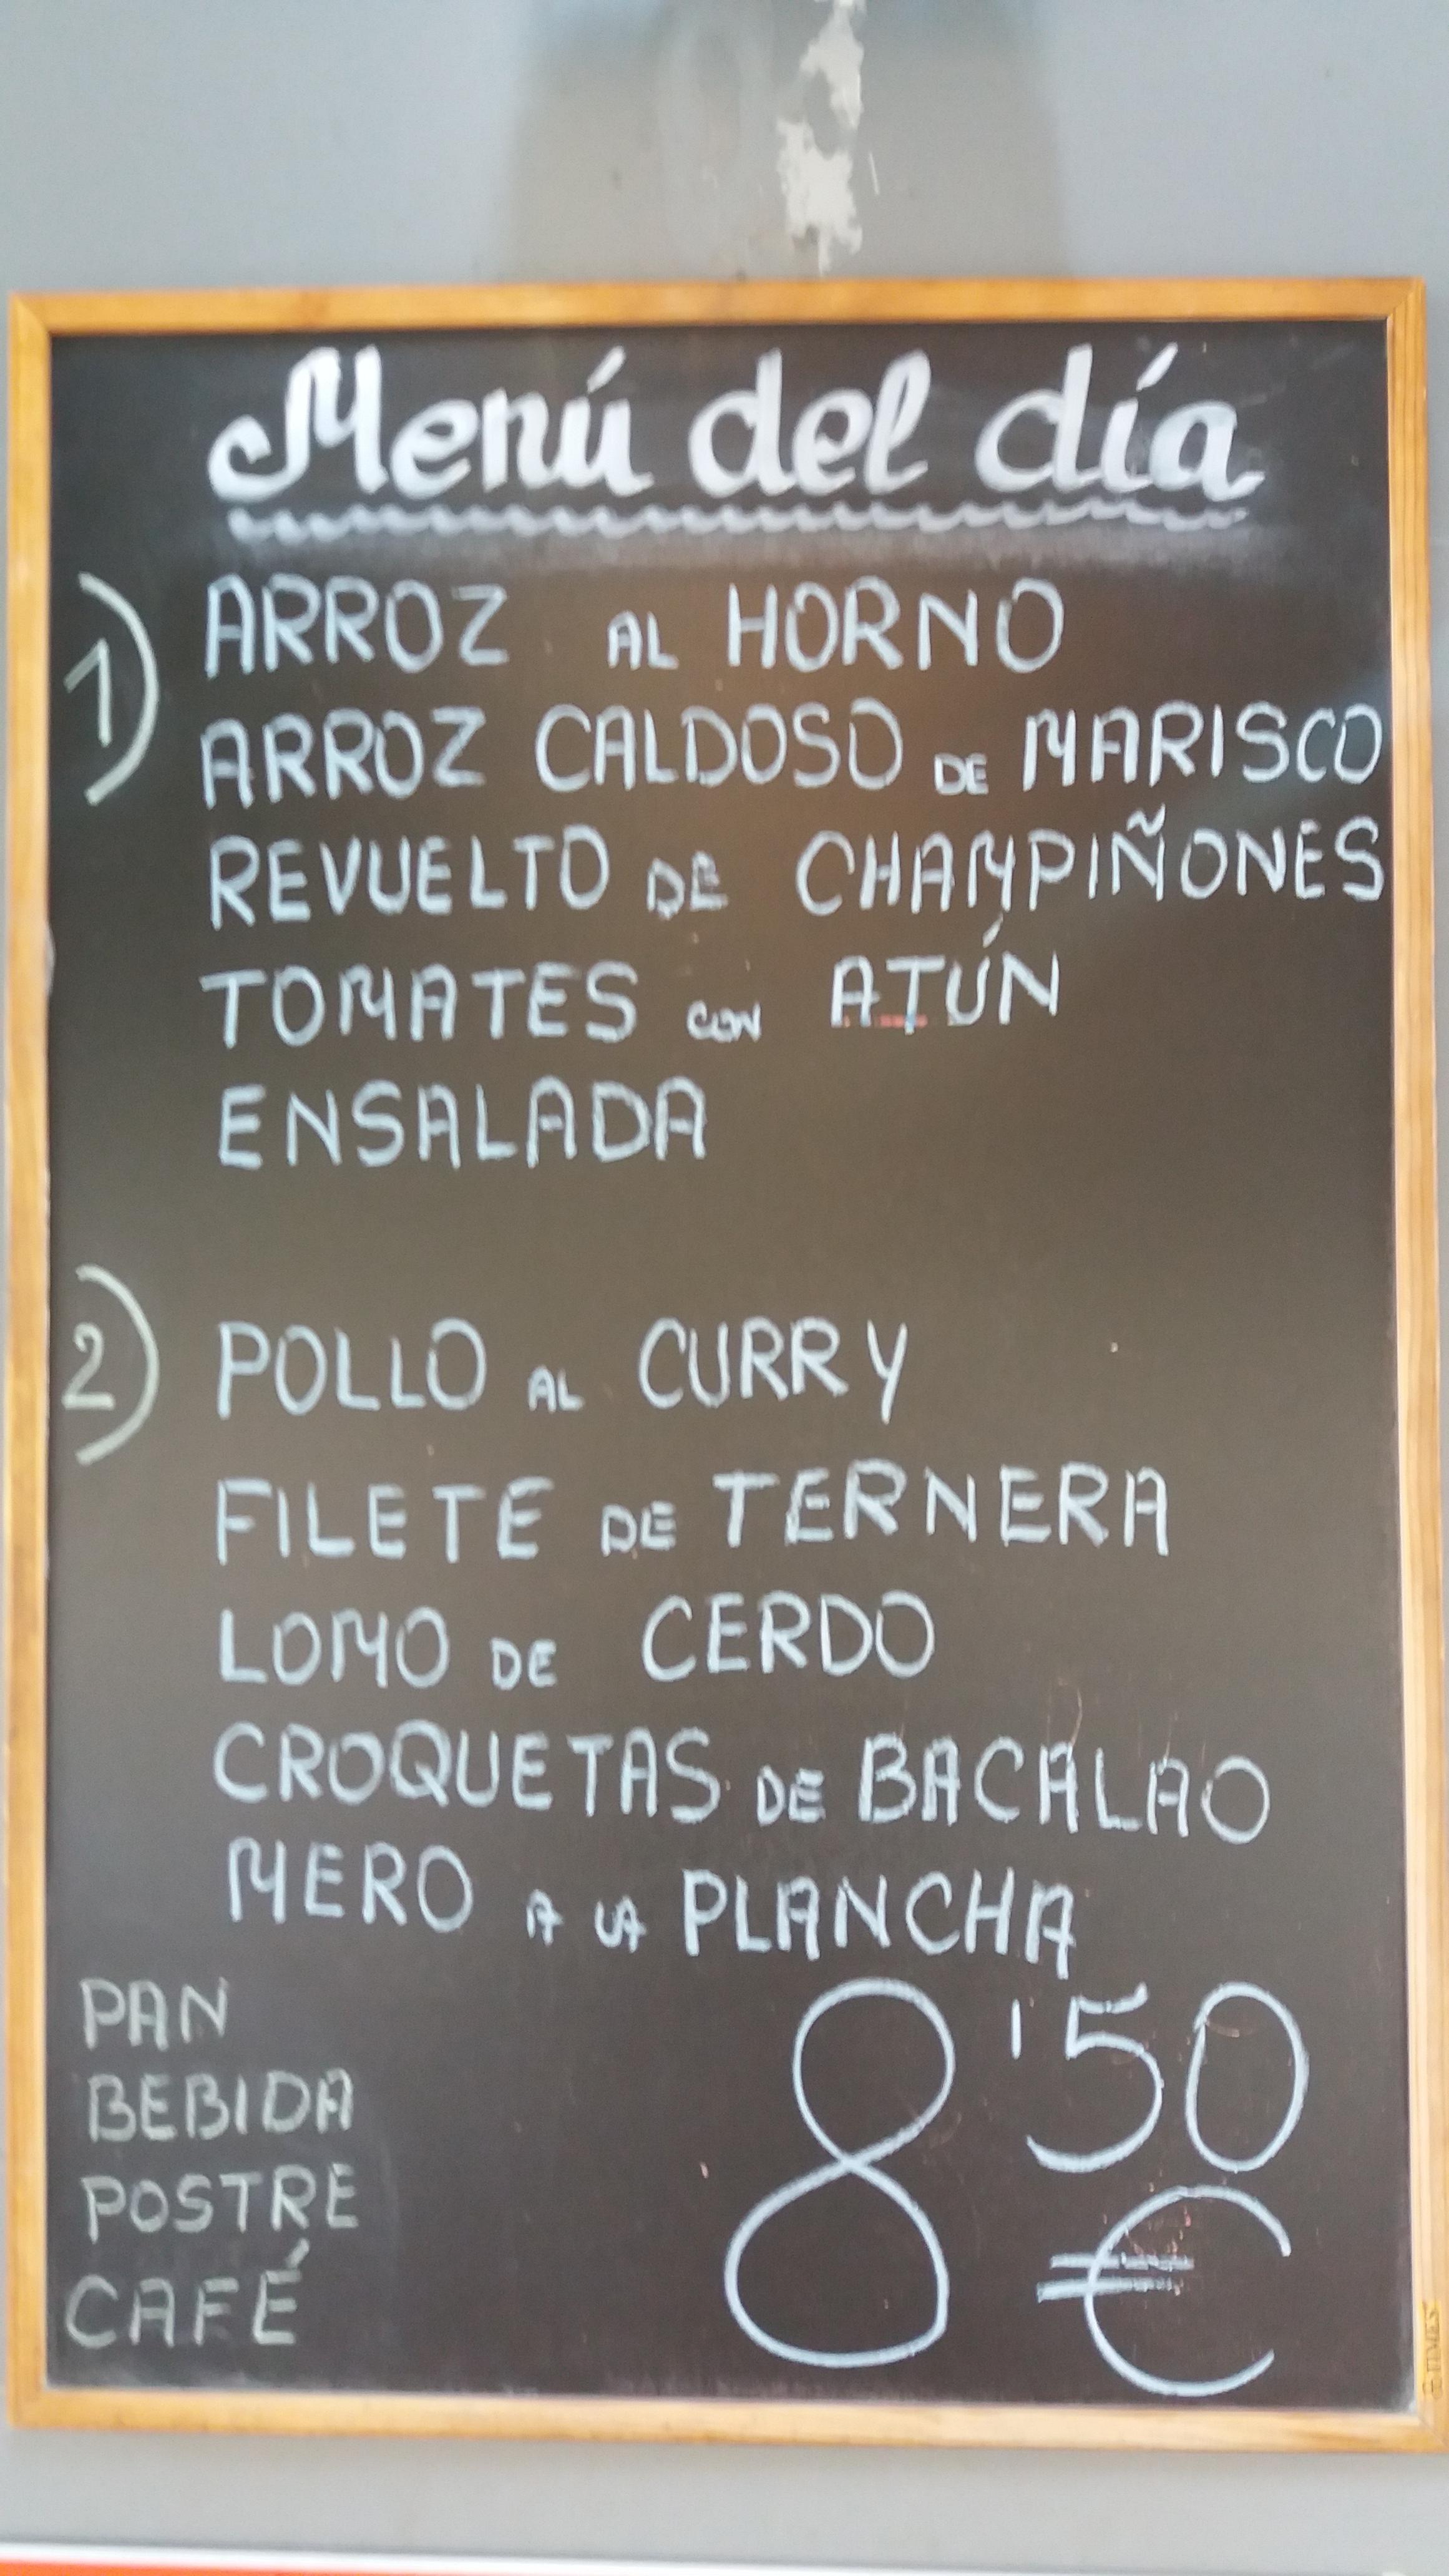 Menú del día
1) ARROZ AL HORNO
ARROZ CALDOSO DE MARISCO
REVUELTO DE CHAMPIÑONES
TOMATES CON ATÚN
ENSALADA
2) POLLO AL CURRY
FILETE DE TERNERA
LOMO DE CERDO
CROQUETAS DE BACALAO
MERO A LA PLANCHA
PAN
BEBIDA
POSTRE
CAFÉ
8'50 €